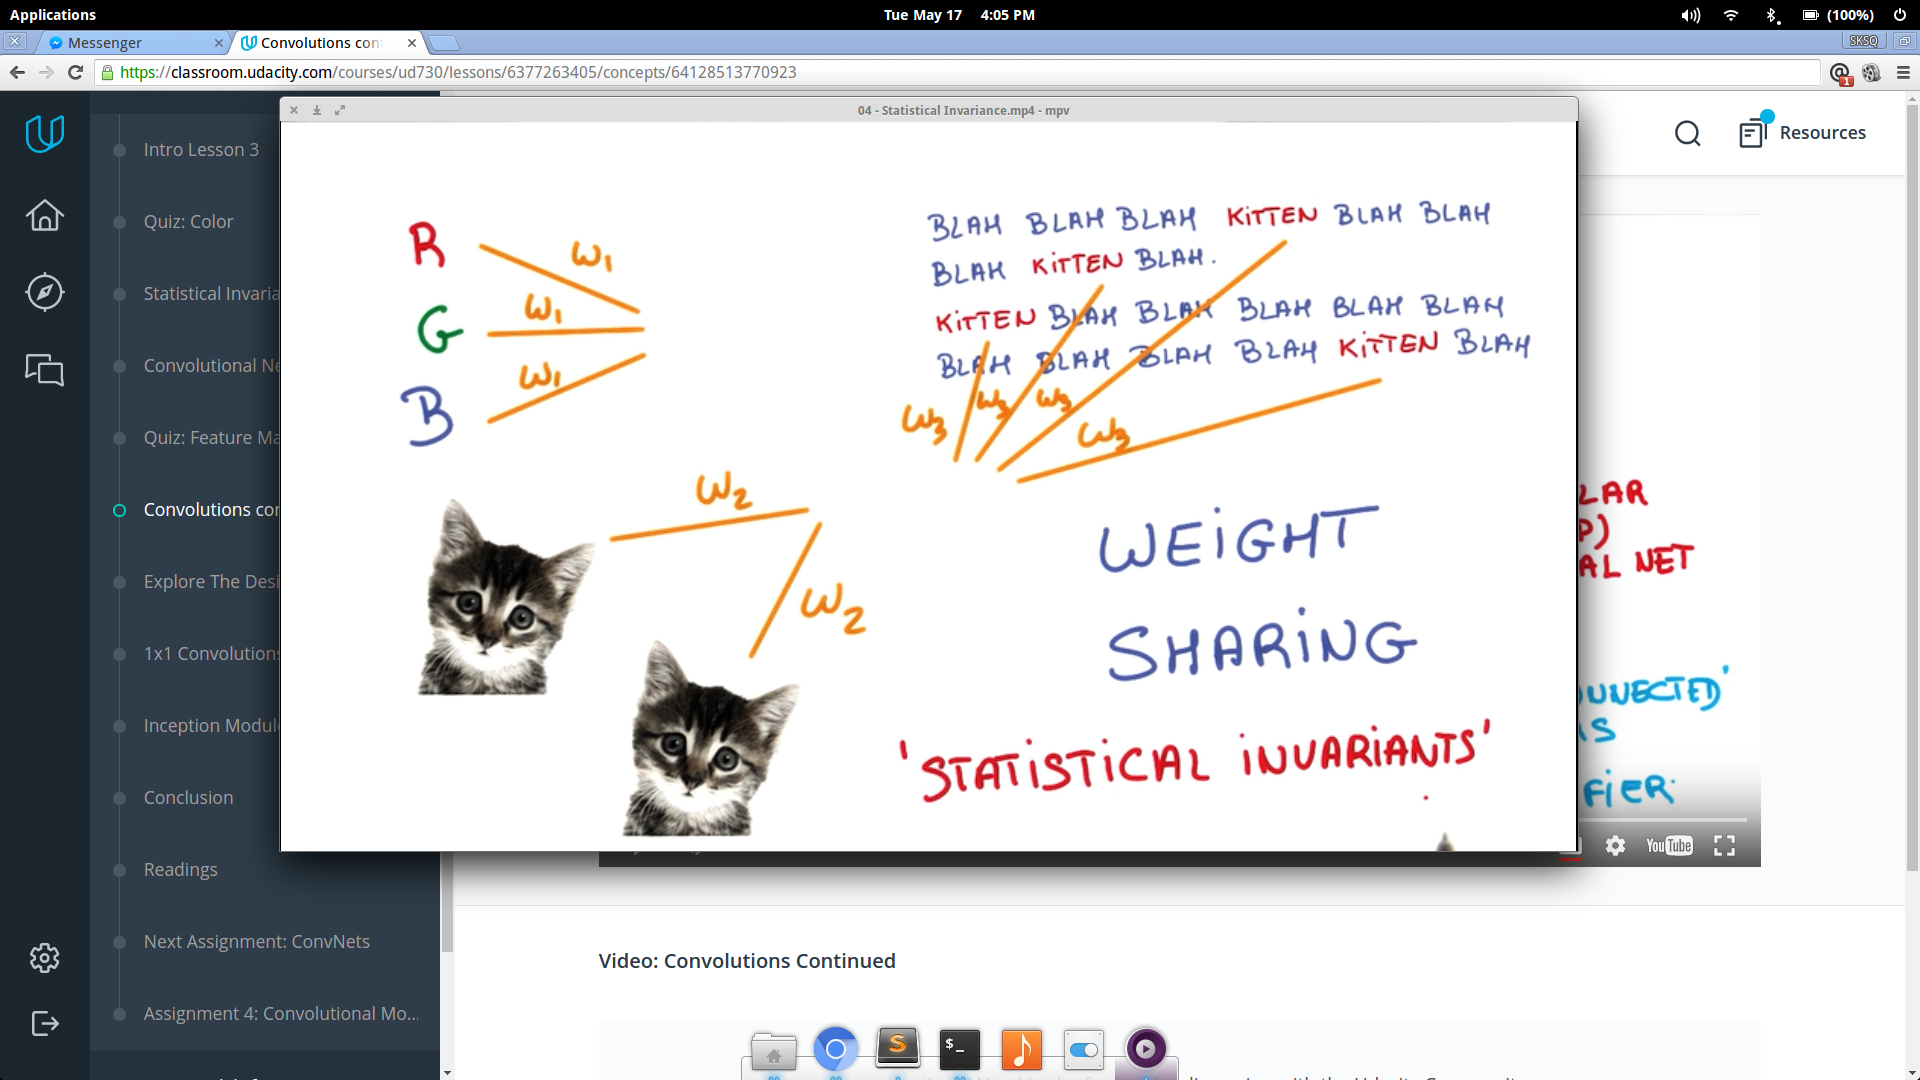 Applications
Tue May 17 4:05 PM
(100%)
Messenger
Convolutions con
SKSQ
https://classroom.udacity.com/courses/ud730/lessons/6377263405/concepts/64128513770923
1
04 - Statistical Invariance.mp4 - mpv
Resources
Intro Lesson 3
Quiz: Color
Statistical Invaria
Convolutional Ne
Quiz: Feature Ma
Convolutions con
Explore The Desi
1x1 Convolutions
Inception Module
Conclusion
Readings
Next Assignment: ConvNets
Assignment 4: Convolutional Mo...
R
G
B
W1
W1
W1
W2
W2
BLAH BLAH BLAH KiTTEN BLAH BLAH
BLAH KiTTEN BLAH.
KiTTEN BLAH BLAH BLAH BLAH BLAH
BLAH BLAH BLAH BLAH KiTTEN BLAH
W3 W3 W3 W3
WEiGHT
SHARiNG
'STATiSTiCAL iNVARiANTS'
LAR
P)
AL NET
NNECTED'
S
FiER.
YouTube
Video: Convolutions Continued
$_
S